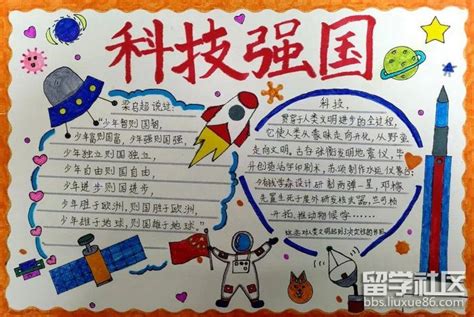 科技强国
梁启超说过:
“少年智则国智,
少年富则国富,少年强则国强,
少年独立则国独立,
少年自由则国自由,
少年进步则国进步,
少年胜于欧洲,则国胜于欧洲,
少年雄于地球,则国雄于地球。”
科技,
贯穿于人类文明进步的全过程,
它使人类从愚昧走向开化,从野蛮
走向文明。古有张衡发明地震仪,毕
升创造活字印刷术,苏颂制作
钱学森设计研制两弹一星,邓稼
先
开拓,推动物候学……
留学社区
bbs.liuxue86.com